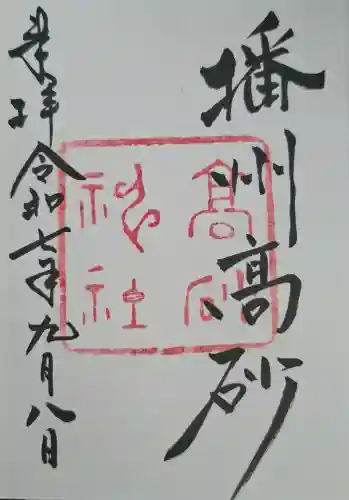 播州高砂
高砂
神社
奉拝 令和七年九月八日